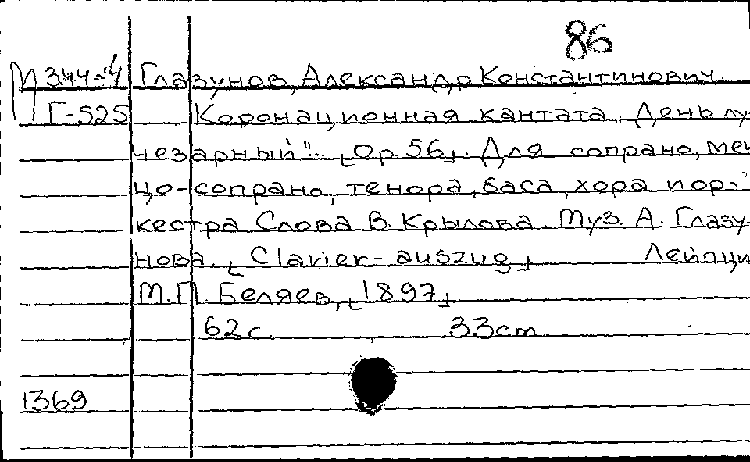 86
М 344-4 Глазунов, Александр Константинович.
Г-525 Коронационная кантата „День лу-
чезарный". [Ор 56]. Для сопрано, мец-
цо-сопрано, тенора, баса, хора и ор-
кестра Слова В. Крылова. Муз. А. Глазу-
нова. [Clavier-auszug] Лейпци
М.П. Беляев, [1897]
62 с. 33 cm
1369